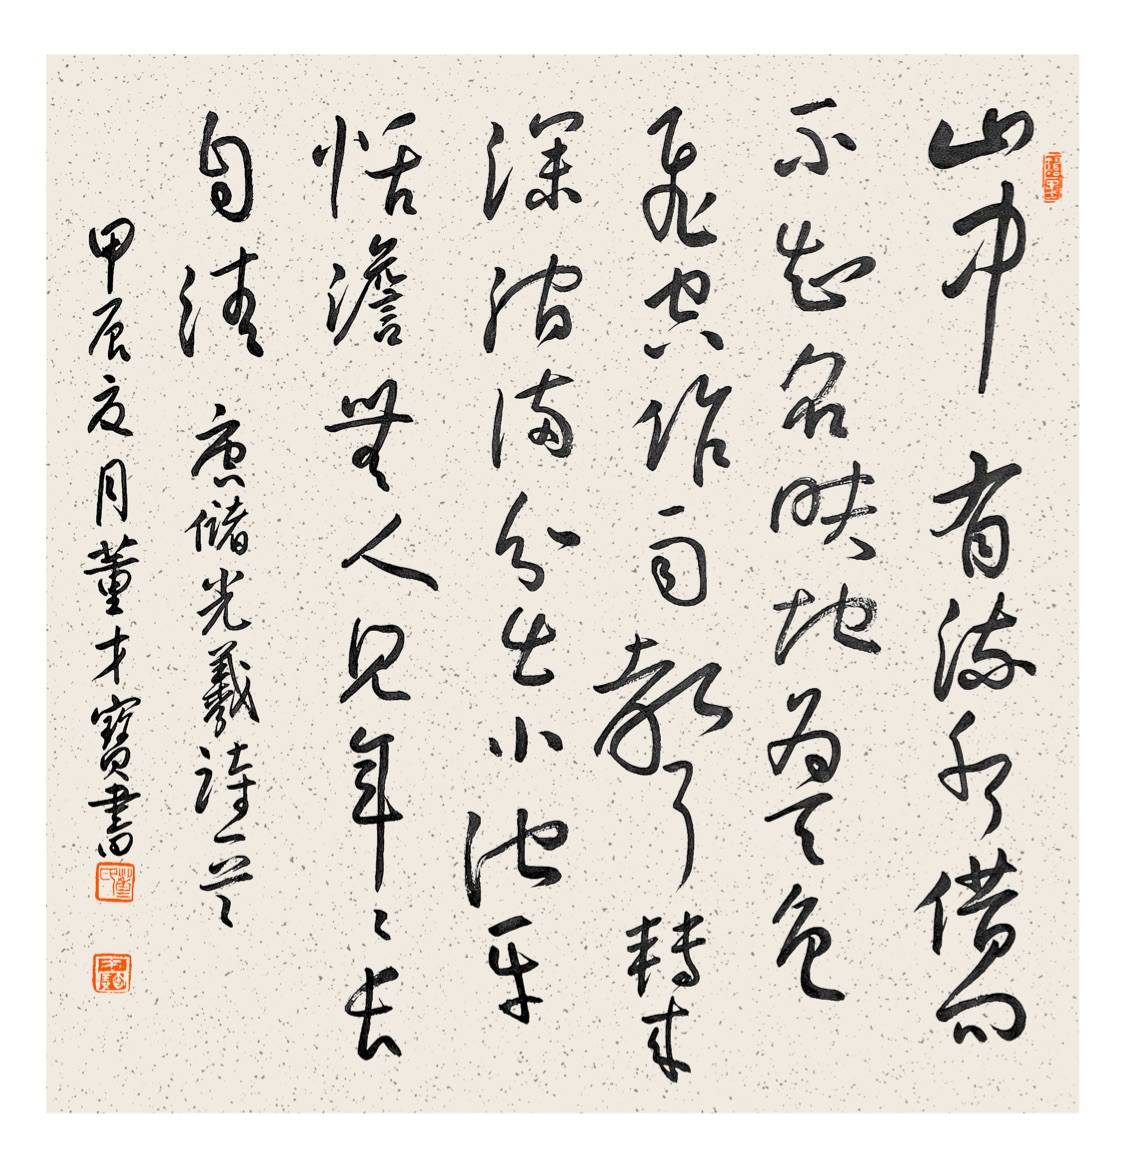 山中有流水借問
不知名映地為天色
飛空作雨聲轉來
深澗滿分出小池平
恬澹無人見年々長
自清 唐儲光羲詩一首
甲辰夏月董才寶書